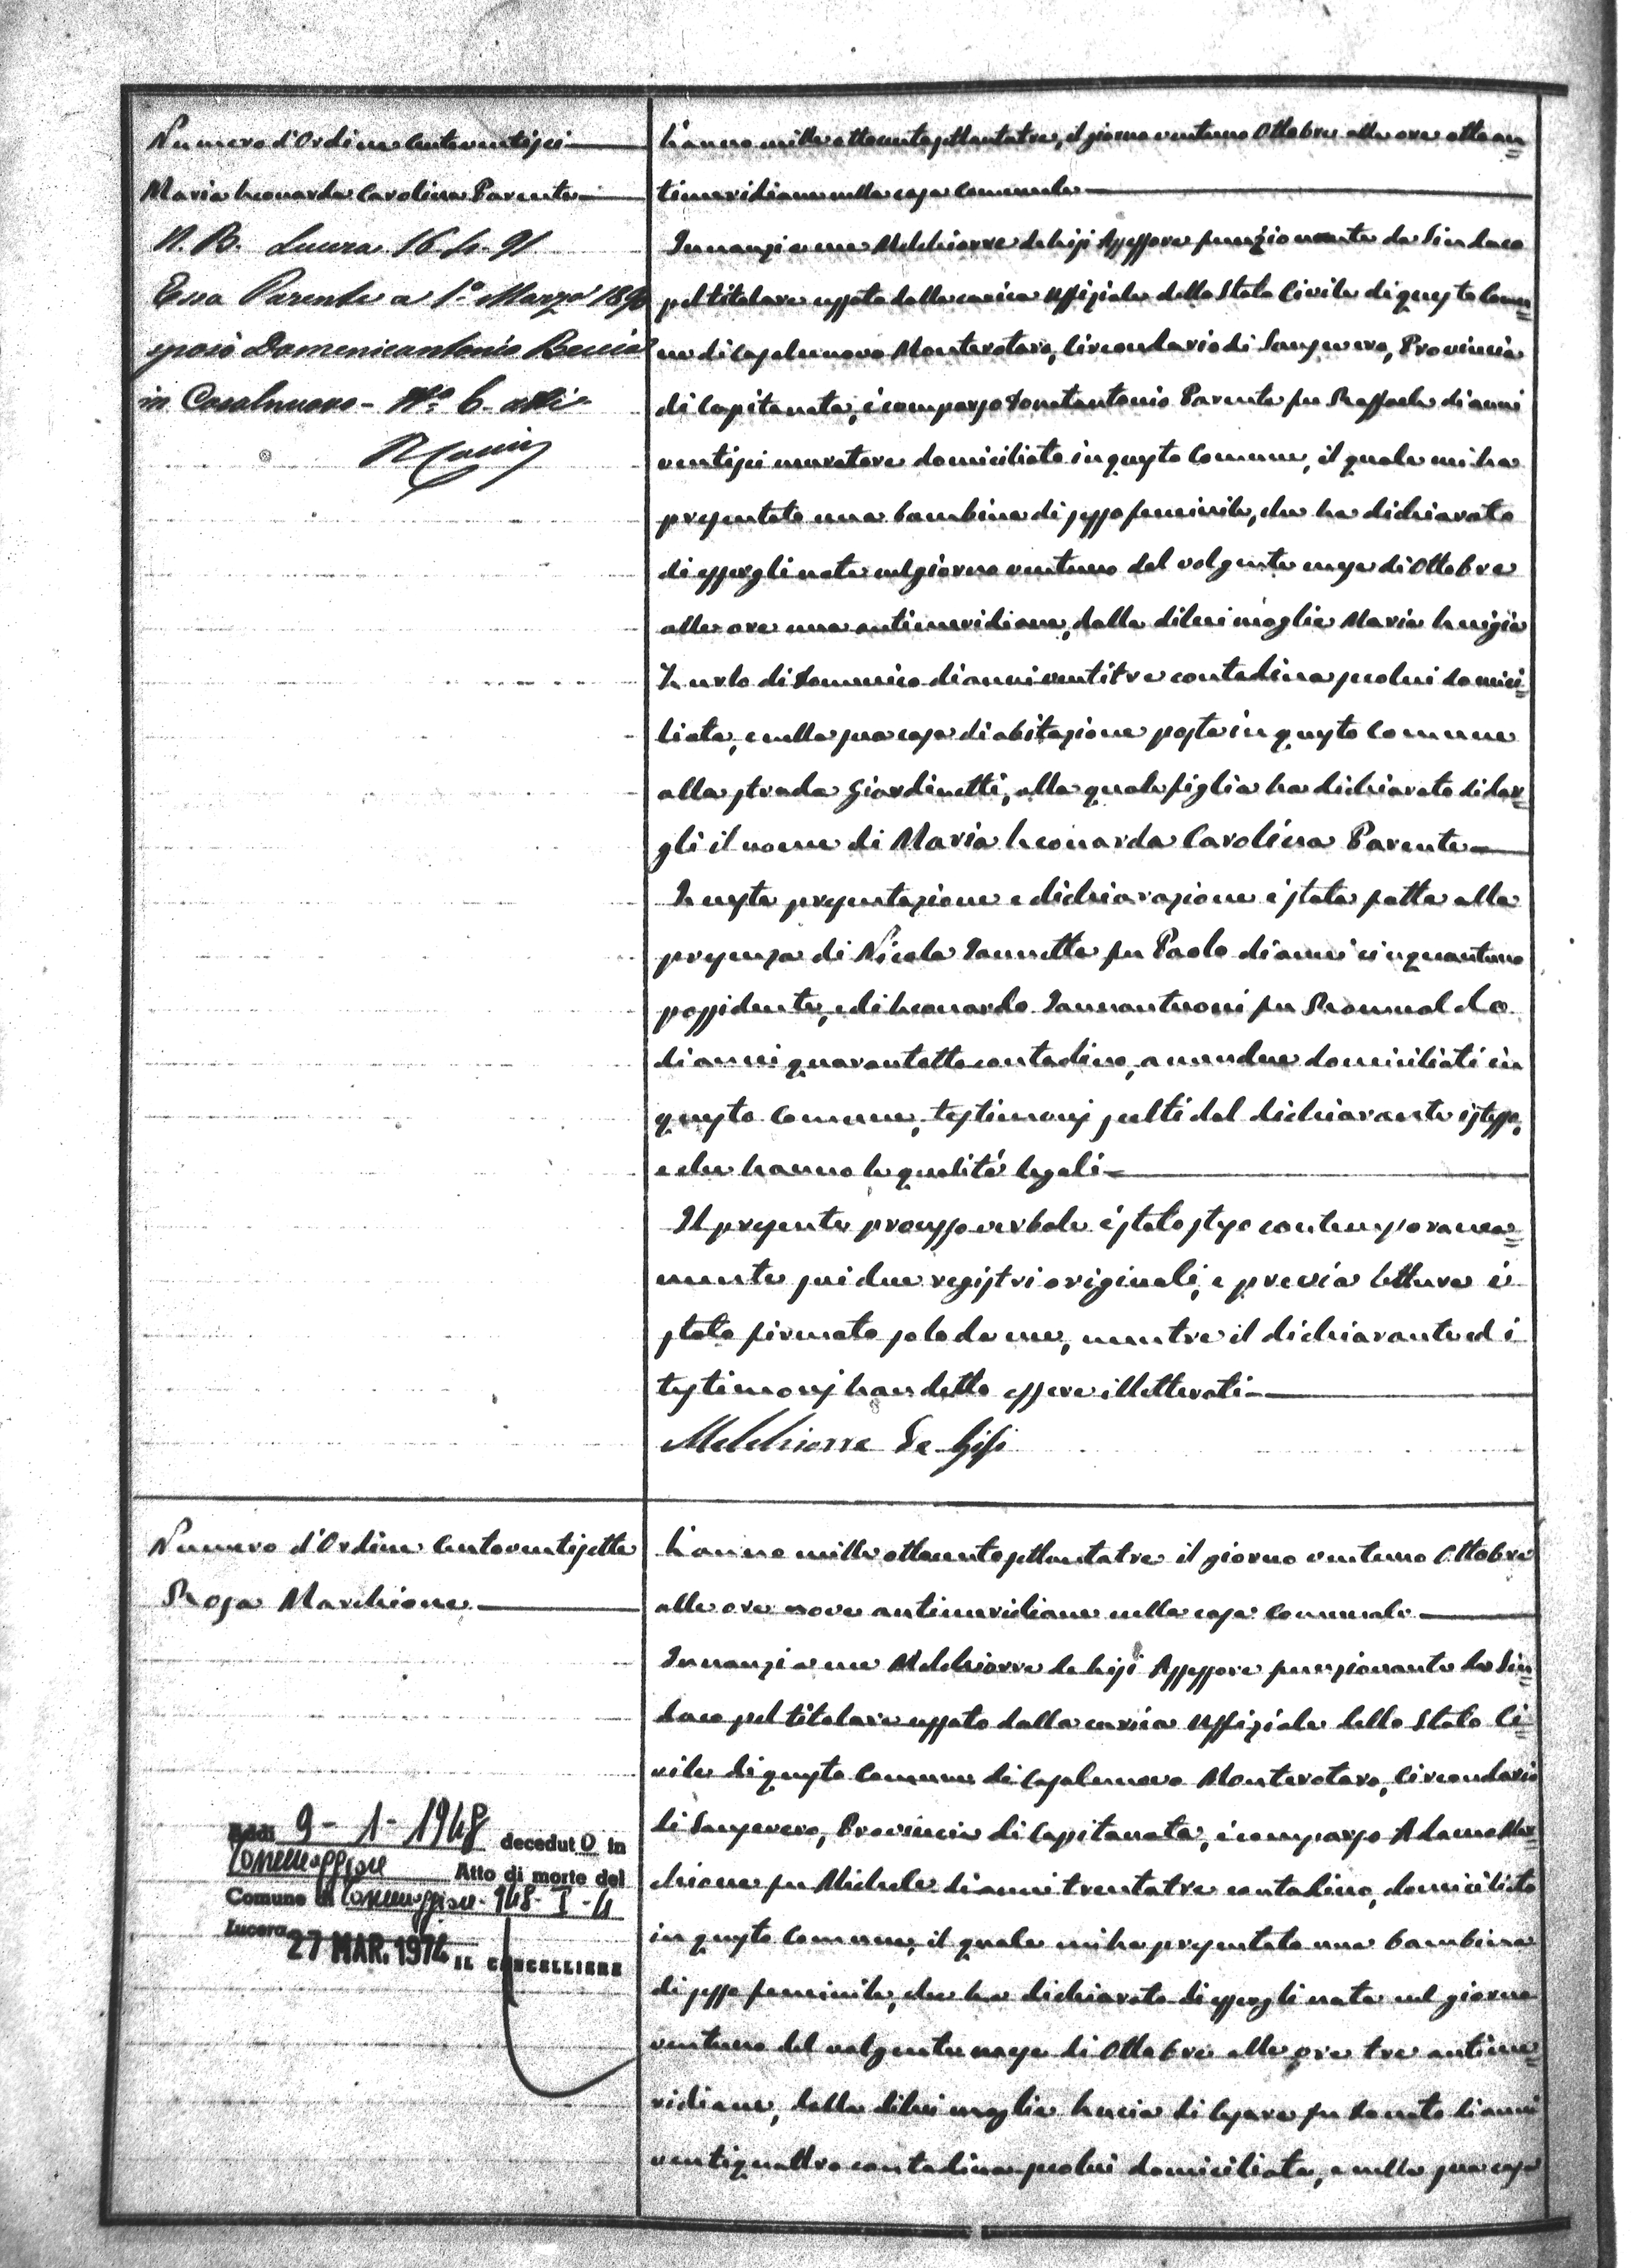 Numero d'Ordine Centoventisei
Maria Leonarda Carolina Parente
N. B. Lucera 16.4.91
Essa Parente a 1.° Marzo 1890
sposò Domenicantonio
in Casalnuovo - N.° 6 atti
L'anno mille ottocentosettantatre, il giorno ventuno Ottobre alle ore otto an=
timeridiane nella casa Comunale
Innanzi a me Melchiorre de Lisi Assessore funzionante da Sindaco
pel titolare cessato dalla carica Uffiziale dello Stato Civile di questo Comu=
ne di Casalnuovo Monterotaro, Circondario di Sansevero, Provincia
di Capitanata, è comparso Donatantonio Parente fu Raffaele di anni
ventisei muratore domiciliato in questo Comune, il quale mi ha
presentato una bambina di sesso feminile, che ha dichiarato
di essergli nata nel giorno ventuno del volgente mese di Ottobre
alle ore una antimeridiane, dalla di lui moglie Maria Luigia
Iurlo di Domenico di anni ventitre contadina secolui domici=
liata, e nella sua casa di abitazione posta in questo Comune
alla strada Giardinetti, alla quale figlia ha dichiarato di dar=
gli il nome di Maria Leonarda Carolina Parente
Questa presentazione e dichiarazione è stata fatta alla
presenza di Nicola Iannetta fu Paolo di anni cinquantuno
possidente, e di Leonardo Iannantuoni fu Romualdo
di anni quarantotto contadino, amendue domiciliati in
questo Comune, testimonj scelti dal dichiarante istesso,
e che hanno le qualità legali
Il presente processo verbale è stato steso contemporanea=
mente sui due registri originali, e previa lettura è
stato firmato solo da me, mentre il dichiarante ed i
testimonj han detto essere illetterati
Melchiorre De Lisi
Numero d'Ordine Centoventisette
Rosa Marchione
Addì 9-1-1948 deceduto in
Atto di morte del
Comune di 948-I-4
Lucera 27 MAR. 1974 IL CANCELLIERE
L'anno mille ottocentosettantatre il giorno ventuno Ottobre
alle ore nove antimeridiane nella casa Comunale
Innanzi a me Melchiorre de Lisi Assessore funzionante da Sin=
daco pel titolare cessato dalla carica Uffiziale dello Stato Ci=
vile di questo Comune di Casalnuovo Monterotaro, Circondario
di Sansevero, Provincia di Capitanata, è comparso Adamo Mar=
chione fu Michele di anni trentatre contadino, domiciliato
in questo Comune, il quale mi ha presentato una bambina
di sesso feminile, che ha dichiarato di essergli nata nel giorno
ventuno del volgente mese di Ottobre alle ore tre antime=
ridiane, dalla di lui moglie Lucia di Cesare fu Donato di anni
ventiquattro contadina secolui domiciliata, e nella sua casa